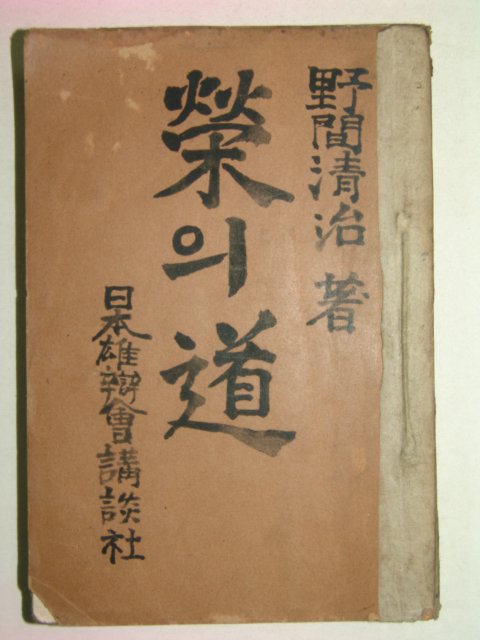 野間清治 著
榮의道
日本雄辯會講談社